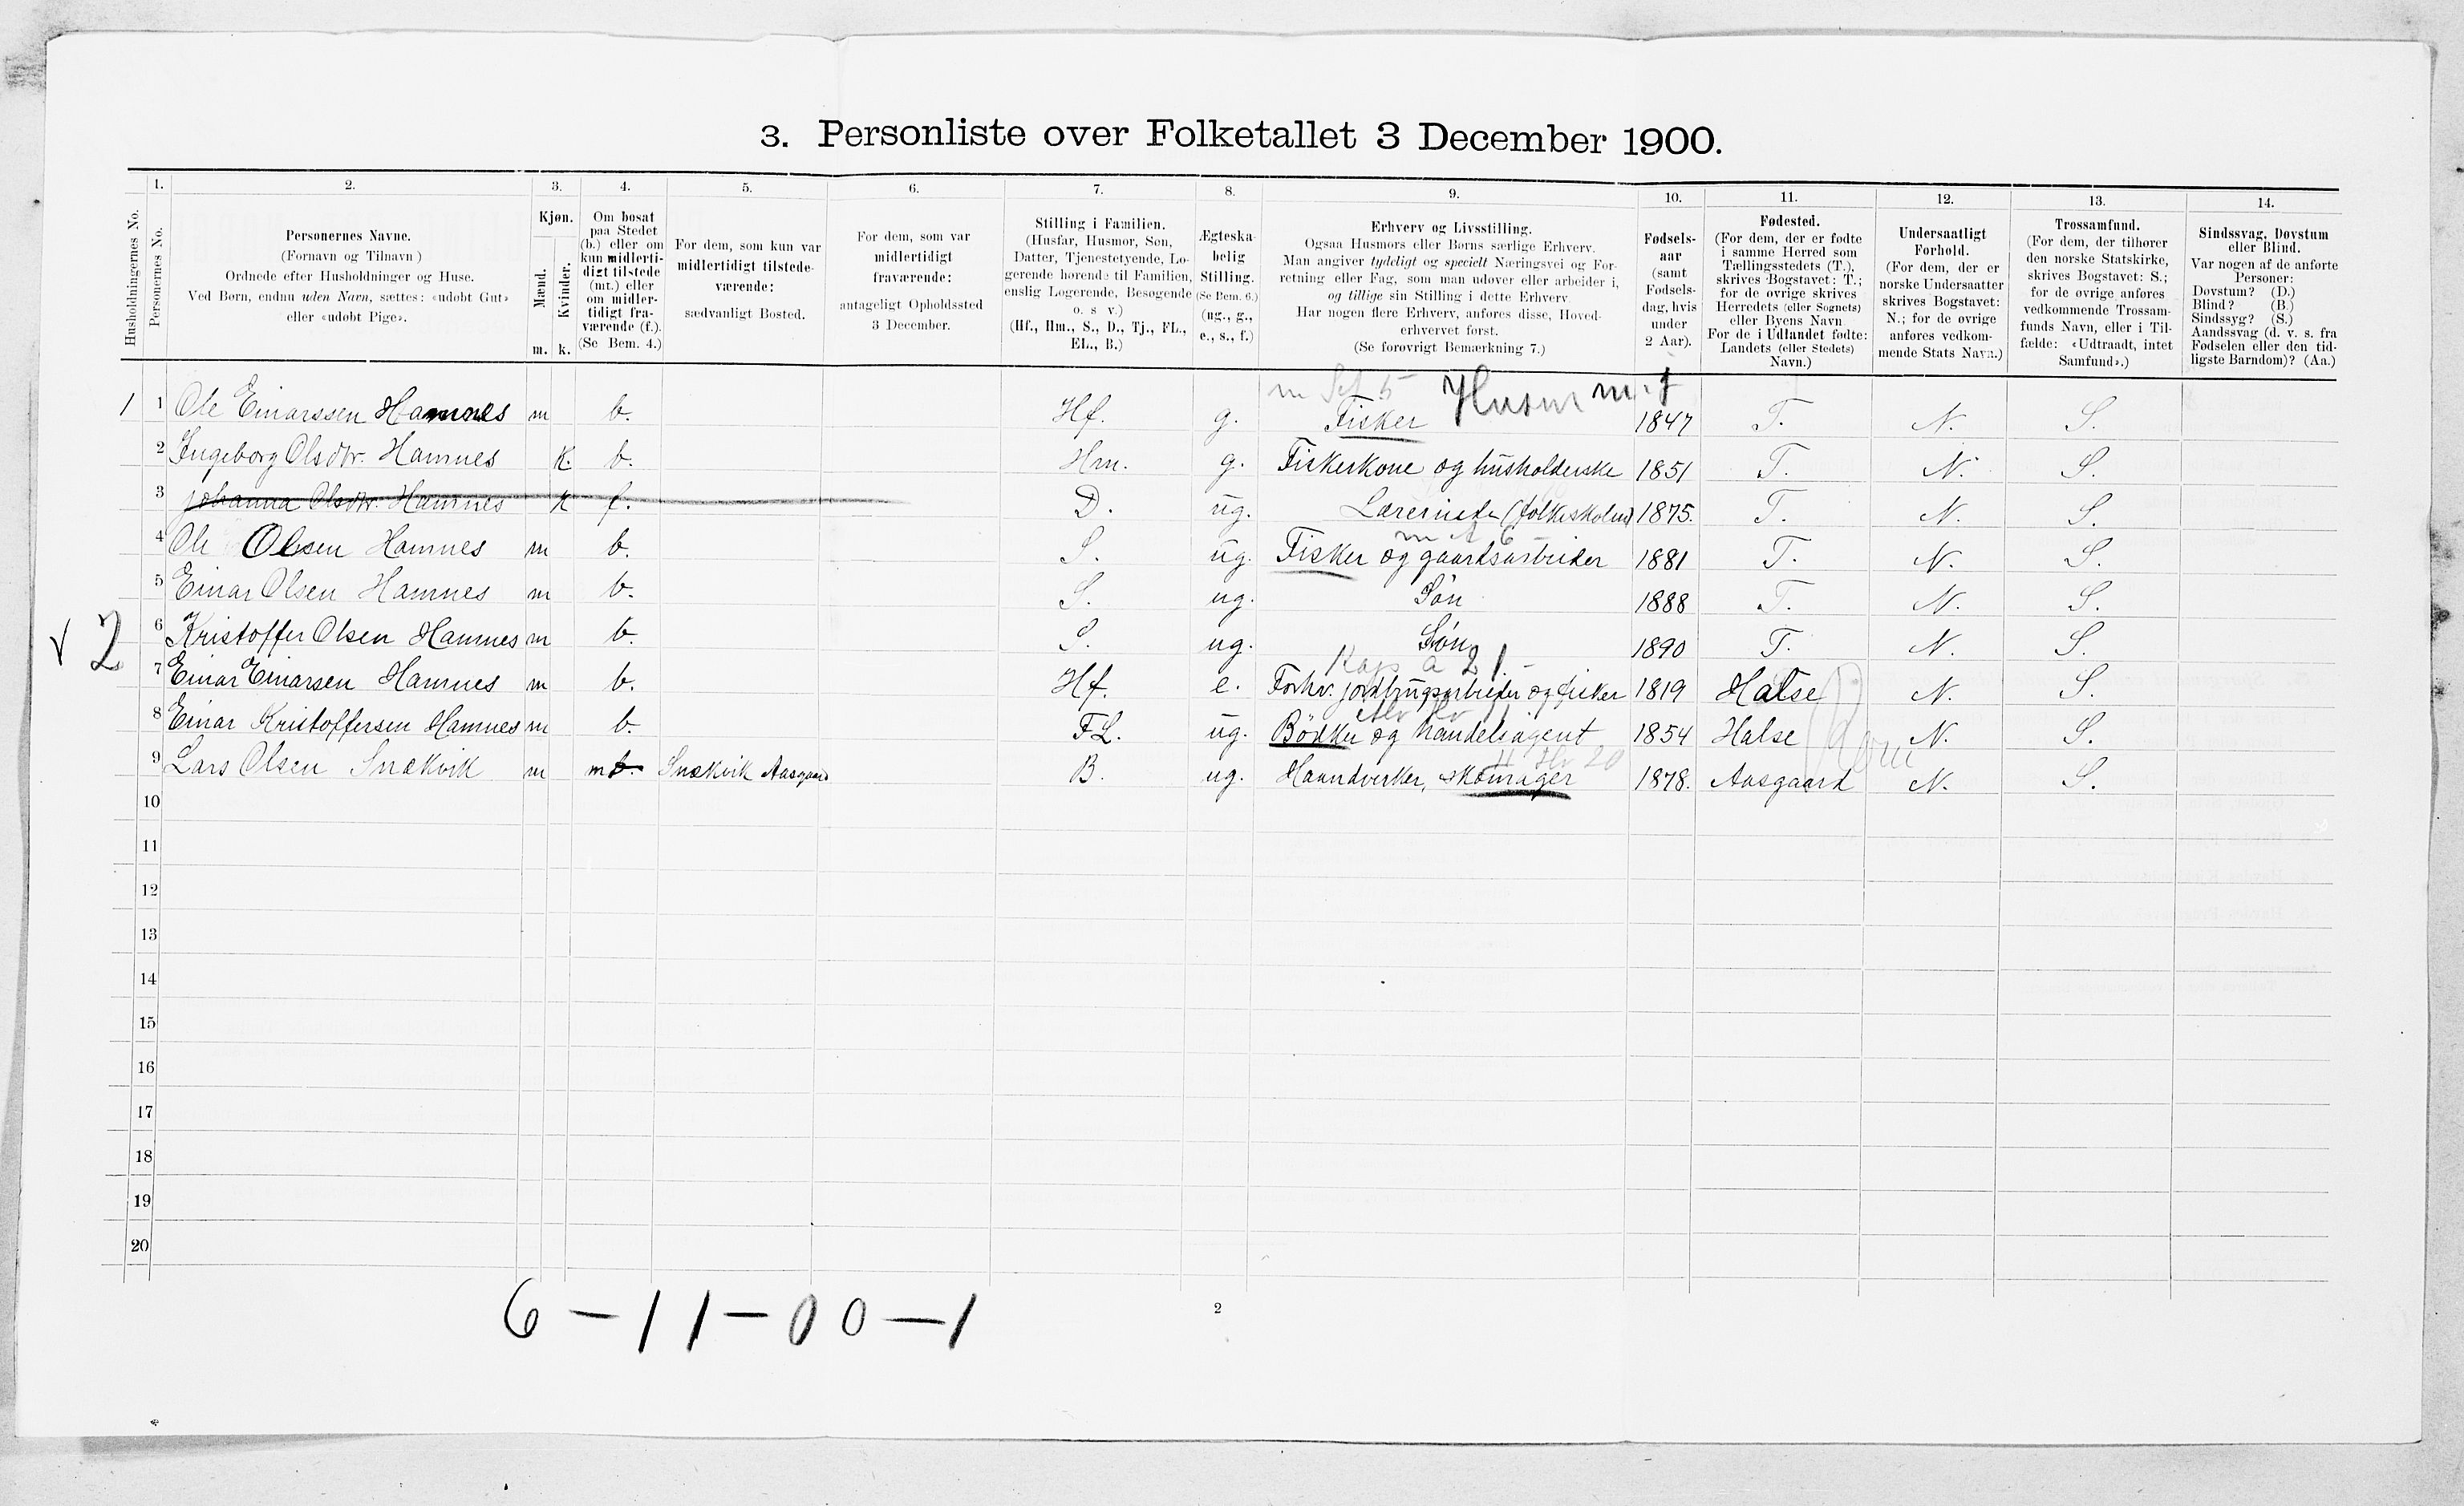 3. Personliste over Folketallet 3 December 1900.
1. 2. 3. 4. 5. 6. 7. 8. 9. 10. 11. 12. 13. 14.
Husholdningernes No.
Personernes No.
Personernes Navne.
(Fornavn og Tilnavn)
Ordnede efter Husholdninger og Huse.
Ved Børn, endnu uden Navn, sættes: «udøbt Gut»
eller «udøbt Pige».
Kjøn.
Mænd.
Kvinder.
m. k.
Om bosat
paa Stedet
(b.) eller om
kun midlerti-
digt tilstede
(mt.) eller
om midler-
tidigt fra-
værende (f.).
(Se Bem. 4.)
For dem, som kun var
midlertidigt tilstede-
værende:
sædvanligt Bosted.
For dem, som var
midlertidigt
fraværende:
antageligt Opholdssted
3 December.
Stilling i Familien.
(Husfar, Husmor, Søn,
Datter, Tjenestetyende, Lo-
gerende hørende til Familien,
enslig Logerende, Besøgende
o. s v.)
(Hf., Hm., S., D., Tj., FL.,
EL., B.)
Ægteska-
belig
Stilling.
(Se Bem. 6.)
(ug., g.,
e., s., f.)
Erhverv og Livsstilling.
Ogsaa Husmors eller Børns særlige Erhverv.
Man angiver tydeligt og specielt Næringsvei og For-
retning eller Fag, som man udøver eller arbeider i,
og tillige sin Stilling i dette Erhverv.
Har nogen flere Erhverv, anføres disse, Hoved-
erhvervet først.
(Se forøvrigt Bemærkning 7.)
Fødsels-
aar
(samt
Fødsels-
dag, hvis
under
2 Aar).
Fødested.
(For dem, der er fødte
i samme Herred som
Tællingsstedets (T.),
skrives Bogstavet: T.;
for de øvrige skrives
Herredets (eller Sognets)
eller Byens Navn
For de i Udlandet fødte:
Landets (eller Stedets)
Navn.)
Undersaatligt
Forhold.
(For dem, der er
norske Undersaatter
skrives Bogstavet:
N.; for de øvrige
anføres vedkom-
mende Stats Navn.)
Trossamfund.
(For dem, der tilhører
den norske Statskirke,
skrives Bogstavet: S.;
for de øvrige anføres
vedkommende Trossam-
funds Navn, eller i Til-
fælde: «Udtraadt, intet
Samfund».)
Sindssvag, Døvstum
eller Blind.
Var nogen af de anførte
Personer:
Døvstum? (D.)
Blind? (B.)
Sindssyg? (S.)
Aandssvag (d. v. s. fra
Fødselen eller den tid-
ligste Barndom)? (Aa.)
1 1 Ole Einarssen Hamnes m b. Hf. g. Fisker 1847 T. N. S.
2 Ingeborg Olsdtr. Hamnes K. b. Hm. g. Fiskerkone og husholderske 1851 T. N. S.
3 Johanna Olsdtr. Hamnes K f. D. ug. Lærerinde (folkeskolen) 1875. T. N. S.
4 Ole Olsen Hamnes m b. S. ug. Fisker og gaardsarbeider 1881 T. N. S.
5 Einar Olsen Hamnes m b. S. ug. Søn 1888 T. N. S.
6 Kristoffer Olsen Hamnes m b. S. ug. Søn 1890 T. N. S.
2 7 Einar Einarsen Hamnes m b. Hf. e. Forhv. jordbrugsarbeider og fisker 1819 Halse N. S.
8 Einar Kristoffersen Hamnes m b. FL. ug. Bödker og handelsagent 1854 Halse N. S.
9 Lars Olsen Snekvik m mt. Snekvik Aasgaard B. ug. Haandverker, skomager 1878. Aasgaard N. S.
10
11
12
13
14
15
16
17
18
19
20
6-11-00-1
2